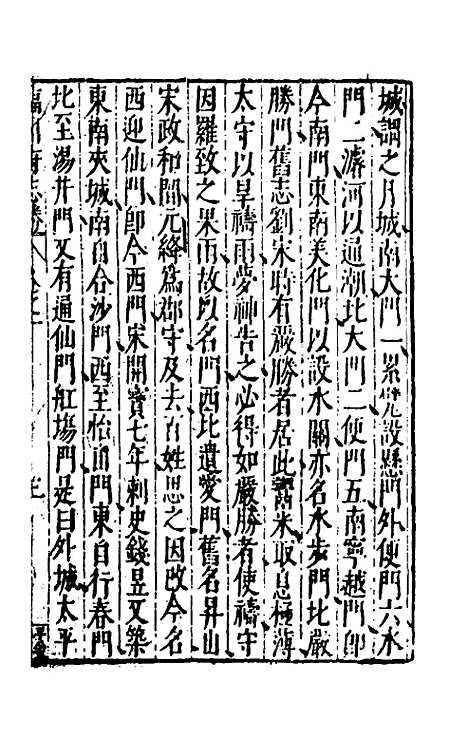 城謂之月城南大門一累甓設懸門外便門六水
門二濬河以通潮北大門二便門五南寧越門即
今南門東南美化門以設水關亦名水步門北嚴
勝門舊志劉宋時有嚴勝者居此糶米取息極薄
太守以旱禱雨夢神告之必得如嚴勝者使禱守
因羅致之果雨故以名門西北遺愛門舊名昇山
宋政和間元絳爲郡守及去百姓思之因改今名
西迎仙門即今西門宋開寶七年刺史錢昱又築
東南夾城南自合沙門西至怡山門東自行春門
北至湯井門又有通仙門舡塲門是曰外城太平
福州府志卷之